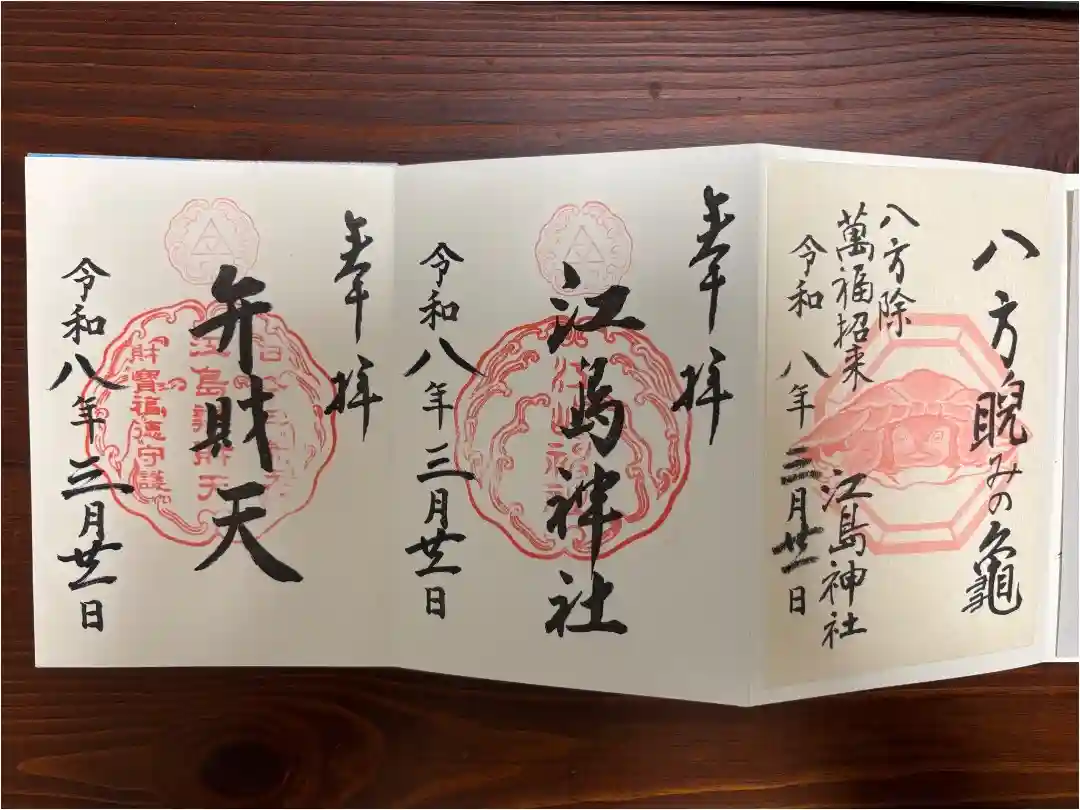 八方睨みの龜
八方除
萬福招来
江島神社
令和八年三月廿一日
奉拝
江島神社
令和八年三月廿一日
奉拝
弁財天
江島辨財天
財寶福徳守護
令和八年三月廿一日